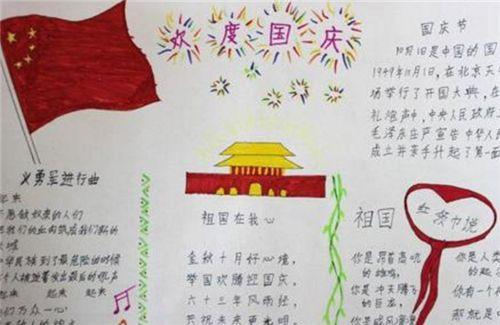 欢度国庆
国庆节
10月1日是中国的国
1949年11月1日,在北京天
场举行了开国大典,在
礼炮声中,中央人民政府
毛泽东庄严宣告中华人
成立并亲手升起了第一面
义勇军进行曲
起来
不愿做奴隶的人们
我们的血肉筑成我们新的
城
华民族到了最危险的时候
个人被迫着发出最后的吼声
起来 起来 起来
们万众一心
祖国在我心
金秋十月好心境,
举国欢腾迎国庆.
六十三年风雨径,
共祝未来更光明
祖国
你是昂首高吭
的雄鸡,
你是冲天腾飞
的巨龙,
你是威风凛凛
你是人类